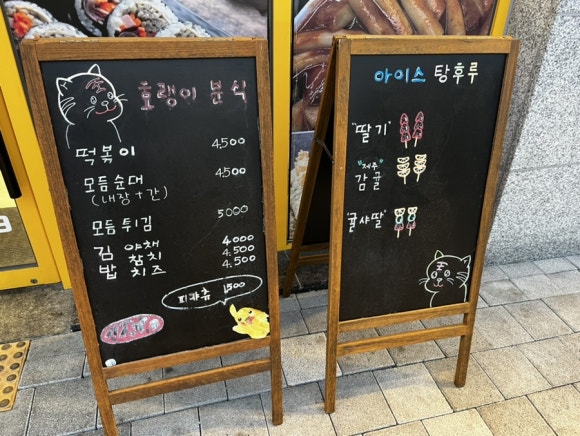 호랭이 분식
떡볶이 4,500
모듬순대 4,500
(내장+간)
모듬 튀김 5,000
김밥 야채 4,000
참치 4,500
치즈 4,500
피카츄 1,500
아이스 탕후루
"딸기"
"제주"
감귤
"귤샤딸"